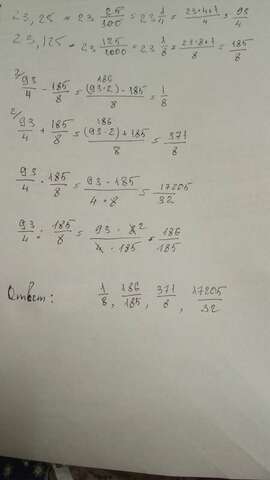 23,25 = 23 25/100 = 23 1/4 = (23·4+1)/4 = 93/4
23,125 = 23 125/1000 = 23 1/8 = (23·8+1)/8 = 185/8
2/ 93/4 - 185/8 = (186 (93·2) - 185)/8 = 1/8
2/ 93/4 + 185/8 = (186 (93·2) + 185)/8 = 371/8
93/4 · 185/8 = (93 · 185)/(4 · 8) = 17205/32
93/4 : 185/8 = (93 · 8 2)/(4 · 185) = 186/185
Ответ: 1/8, 186/185, 371/8, 17205/32